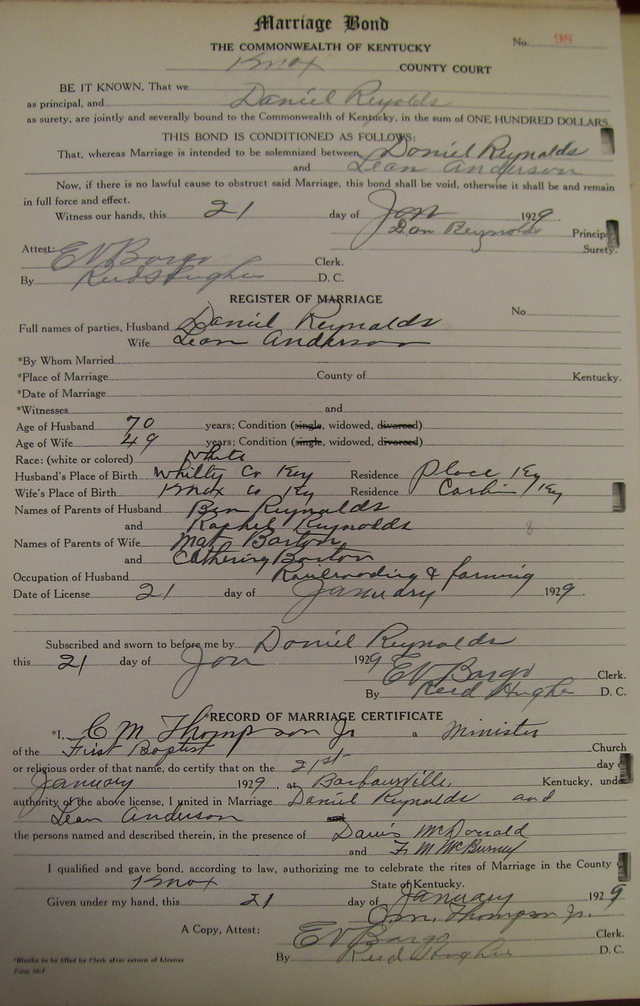 Marriage Bond
No. 98
THE COMMONWEALTH OF KENTUCKY
Knox COUNTY COURT
BE IT KNOWN, That we
as principal, and Daniel Reyolds
as surety, are jointly and severally bound to the Commonwealth of Kentucky, in the sum of ONE HUNDRED DOLLARS.
THIS BOND IS CONDITIONED AS FOLLOWS:
That, whereas Marriage is intended to be solemnized between Daniel Reynolds
and Lean Anderson
Now, if there is no lawful cause to obstruct said Marriage, this bond shall be void, otherwise it shall be and remain
in full force and effect.
Witness our hands, this 21 day of Jan 1929
Dan Reynolds Princip
Surety.
Attest: E V Bargo Clerk.
By Reed Hughe D. C.
REGISTER OF MARRIAGE
No
Full names of parties, Husband Daniel Reynolds
Wife Lean Anderson
*By Whom Married
*Place of Marriage County of Kentucky.
*Date of Marriage
*Witnesses and
Age of Husband 70 years; Condition (single, widowed, divorced)
Age of Wife 49 years; Condition (single, widowed, divorced)
Race: (white or colored) White
Husband's Place of Birth Whitly Co Ky Residence Place Ky
Wife's Place of Birth Knox Co Ky Residence Corbin Ky
Names of Parents of Husband Ben Reynolds
and Raphel Reynolds
Names of Parents of Wife Mat Barton
and Cathering Barton
Occupation of Husband Railroading & farming
Date of License 21 day of January 1929.
Subscribed and sworn to before me by Daniel Reynolds
this 21 day of Jan 1929
E V Bargo Clerk.
By Reed Hughe D. C.
RECORD OF MARRIAGE CERTIFICATE
*I, C M Thompson Jr a Minister
of the First Baptist Church
or religious order of that name, do certify that on the 21st day
January 1929, at Barbourville, Kentucky, unde
authority of the above license, I united in Marriage Daniel Reynolds and
Lean Anderson
the persons named and described therein, in the presence of Davis McDonald
and F M McBurney
I qualified and gave bond, according to law, authorizing me to celebrate the rites of Marriage in the County
Knox State of Kentucky.
Given under my hand, this 21 day of January 1929
C. M. Thompson Jr.
A Copy, Attest: E V Bargo Clerk.
By Reed Hughe D. C.
*Blanks to be filled by Clerk after return of License